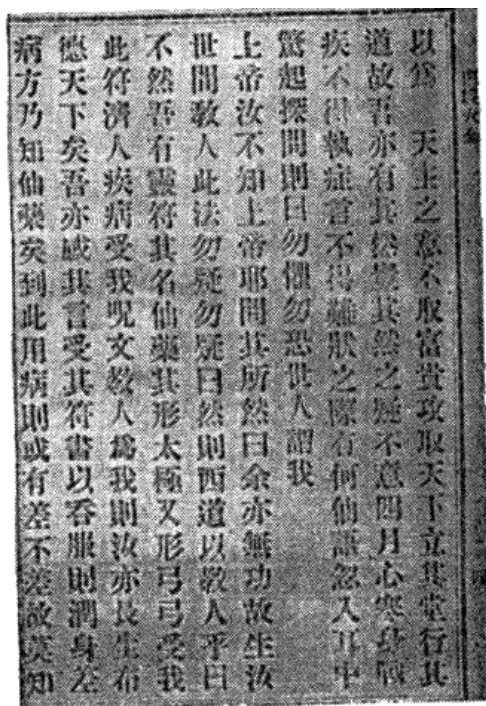 以爲　天主之意不取富貴攻取天下立其堂行其
道故吾亦有其然豈其然之疑不意四月心寒身戰
疾不得執症言不得難狀之際有何仙語忽入耳中
驚起探問則曰勿懼勿恐世人謂我
上帝汝不知上帝耶問其所然曰余亦無功故生汝
世間敎人此法勿疑勿疑曰然則西道以敎人乎曰
不然吾有靈符其名仙藥其形太極又形弓弓受我
此符濟人疾病受我呪文敎人爲我則汝亦長生布
德天下矣吾亦感其言受其符書以呑服則潤身差
病方乃知仙藥矣到此用病則或有差不差故莫知